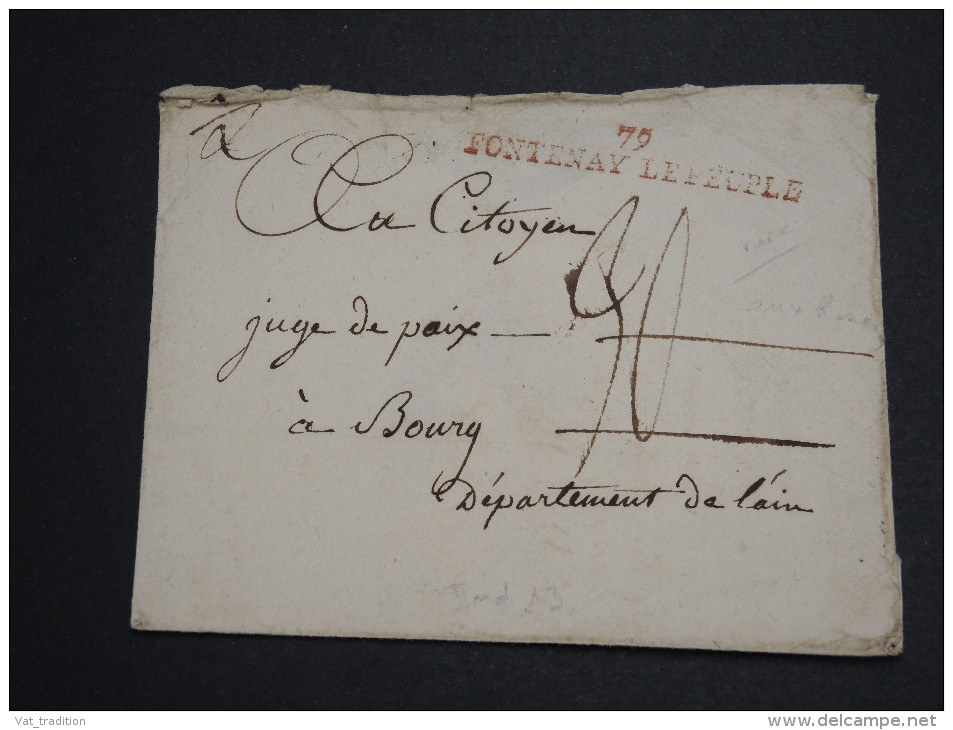 79
FONTENAY LE PEUPLE
Au Citoyen
juge de paix
à Bourg
Département de l'ain
rare
Ind 13.
Vat_tradition
www.delcampe.net